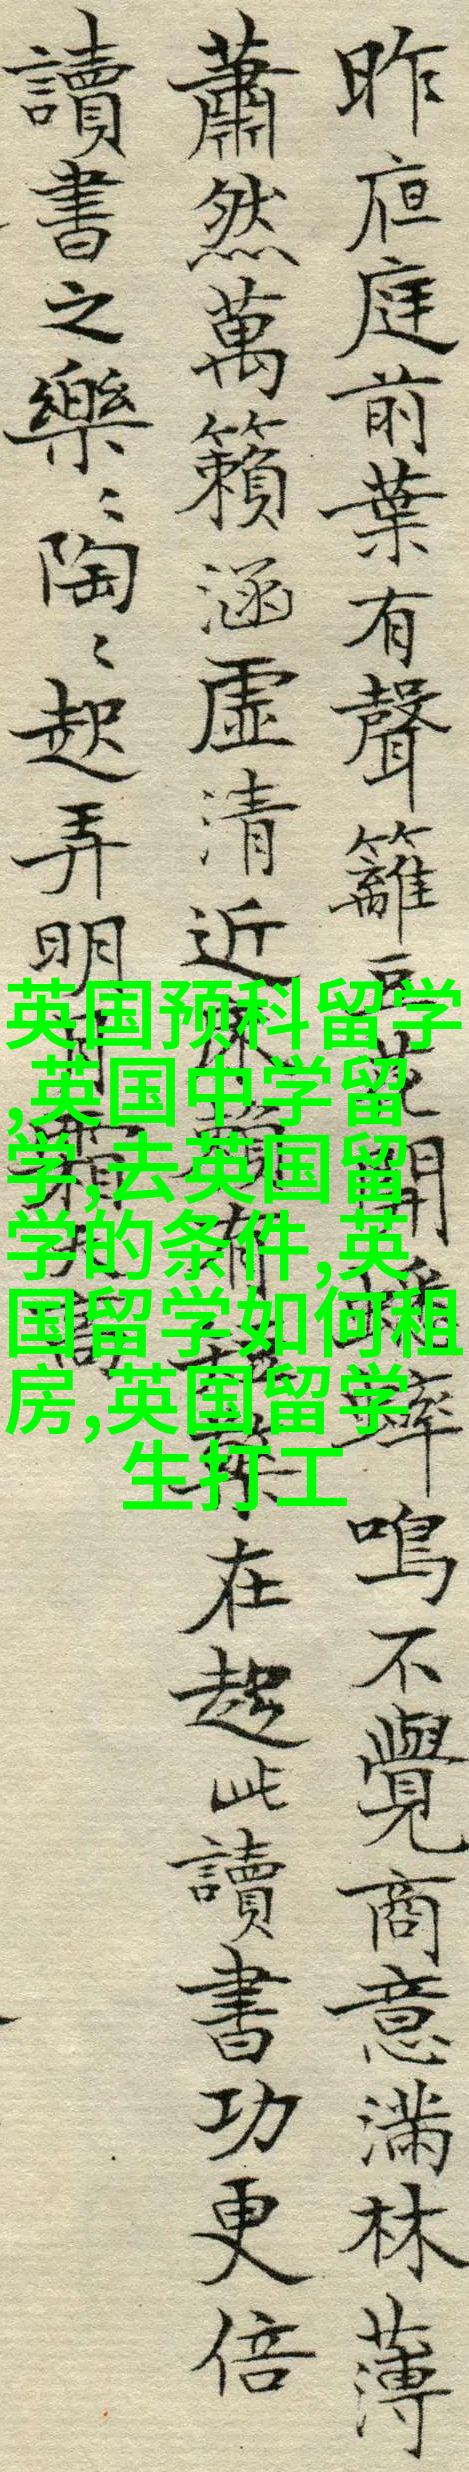 昨夜庭前葉有聲籬豆花開蟋蟀鳴不覺商意滿林薄
蕭然萬籟涵虛清近床賴有在起此讀書功更倍
讀書之樂〻陶〻起弄明月霜天高
英国预科留学
,英国中学留
学,去英国留
学的条件,英
国留学如何租
房,英国留学
生打工